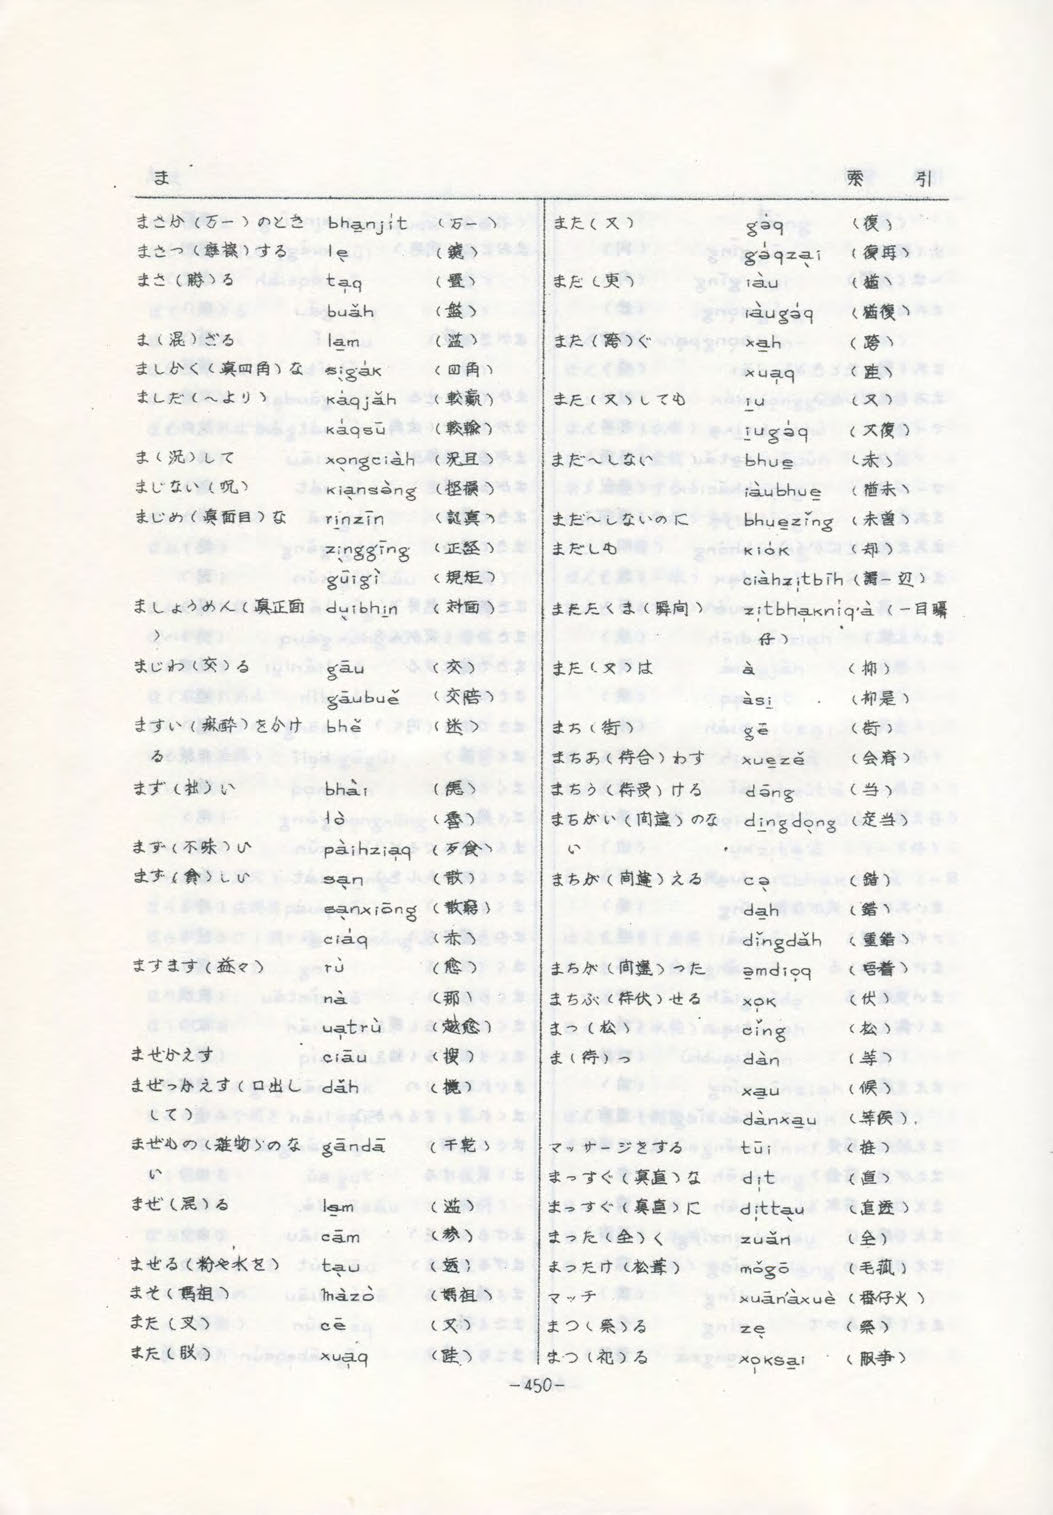 ま 索 引
まさか（万一）のとき bha̱nji̍t （万一）
まさつ（摩擦）する le̱̣ （鑢）
まさ（勝）る ta̍q （疊）
buǎh （盤）
ま（混）ざる la̱m （滥）
ましかく（真四角）な si̱̣gák （四角）
ましだ（～より） káqjǎh （較贏）
káqsū （較輸）
ま（況）して xo̱̣ngciàh （況且）
まじない（呪）
まじめ（真面目）な ri̱nzīn （認真）
zi̱̣nggīng （正経）
gūigì （規矩）
ましょうめん（真正面 du̱̣ibhi̱n （対面）
）
まじわ（交）る gāu （交）
gāubuě （交陪）
ますい（麻酔）をかけ bhě （迷）
る
まず（拙）い bhài
lò （魯）
まず（不味）い pàihzia̍q （歹食）
まず（貧）しい sa̱̣n （散）
sa̱̣nxiōng （散窮）
ciáq （赤）
ますます（益々） rù （愈）
nà （那）
ua̍trù （越愈）
まぜかえす ciāu （搜）
まぜっかえす（口出し dǎh
して）
まぜもの（雑物）のな gāndā （干乾）
い
まぜ（混）る la̱m （滥）
cām （参）
まぜる（粉や水を） ta̱̣u （透）
まそ（媽祖） màzò （媽祖）
また（叉） cē （叉）
また（股） xua̍q
また（又） gə́q （復）
gə́qza̱̣i （復再）
まだ（更） iàu （猶）
iàugə́q （猶復）
また（跨）ぐ xa̱h （跨）
xua̍q
また（又）しても i̱u （又）
i̱ugə́q （又復）
まだ～しない bhue̱ （未）
iàubhue̱ （猶未）
まだ～しないのに bhue̱zǐng （未曽）
まだしも kiók （却）
ciàhzi̍tbīh （請一辺）
またたくま（瞬間） zi̍tbha̍kni̍q'à （一目𥍉
仔）
また（又）は à （抑）
àsi̱ （抑是）
まち（街） gē （街）
まちあ（待合）わす xue̱zě （会齊）
まちう（待受）ける dāng （当）
まちがい（間違）のな di̱ngdo̱̣ng （定当）
い
まちが（間違）える cə̱̣ （錯）
da̱h （錯）
dǐngdǎh （重錯）
まちが（間違）った ə̱mdio̍q
まちぶ（待伏）せる xo̍k （伏）
まつ（松） cǐng （松）
ま（待）つ dàn （等）
xa̱u （候）
dànxa̱u （等候）
マッサージをする tūi （推）
まっすぐ（真直）な di̍t （直）
まっすぐ（真直）に di̍tta̱̣u （直透）
まった（全）く zuǎn （全）
まったけ（松茸） mǒgō （毛菰）
マッチ xuān'àxuè （番仔火）
まつ（祭）る ze̱̣ （祭）
まつ（祀）る xo̍ksa̱i （服事）
-450-